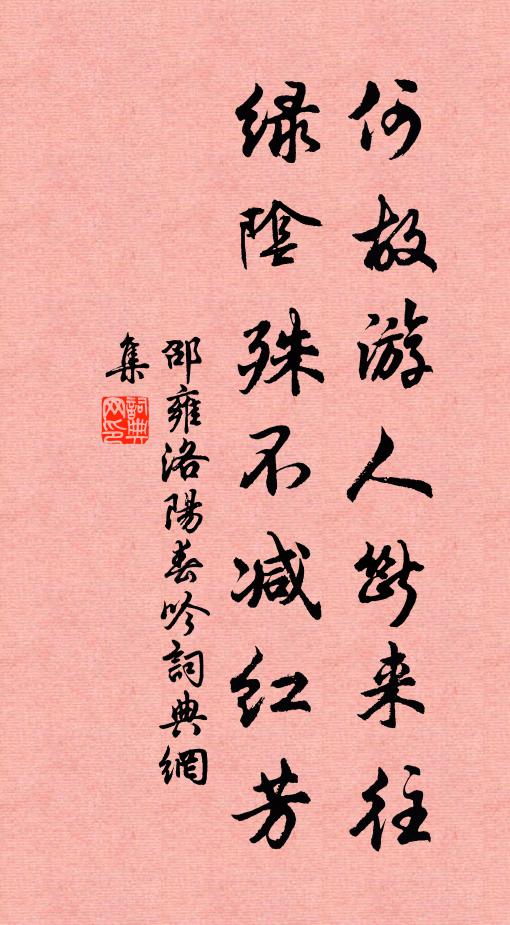 何故游人断来往
绿陰殊不减红芳
邵雍洛陽春吟詞典網
集
詞典網印